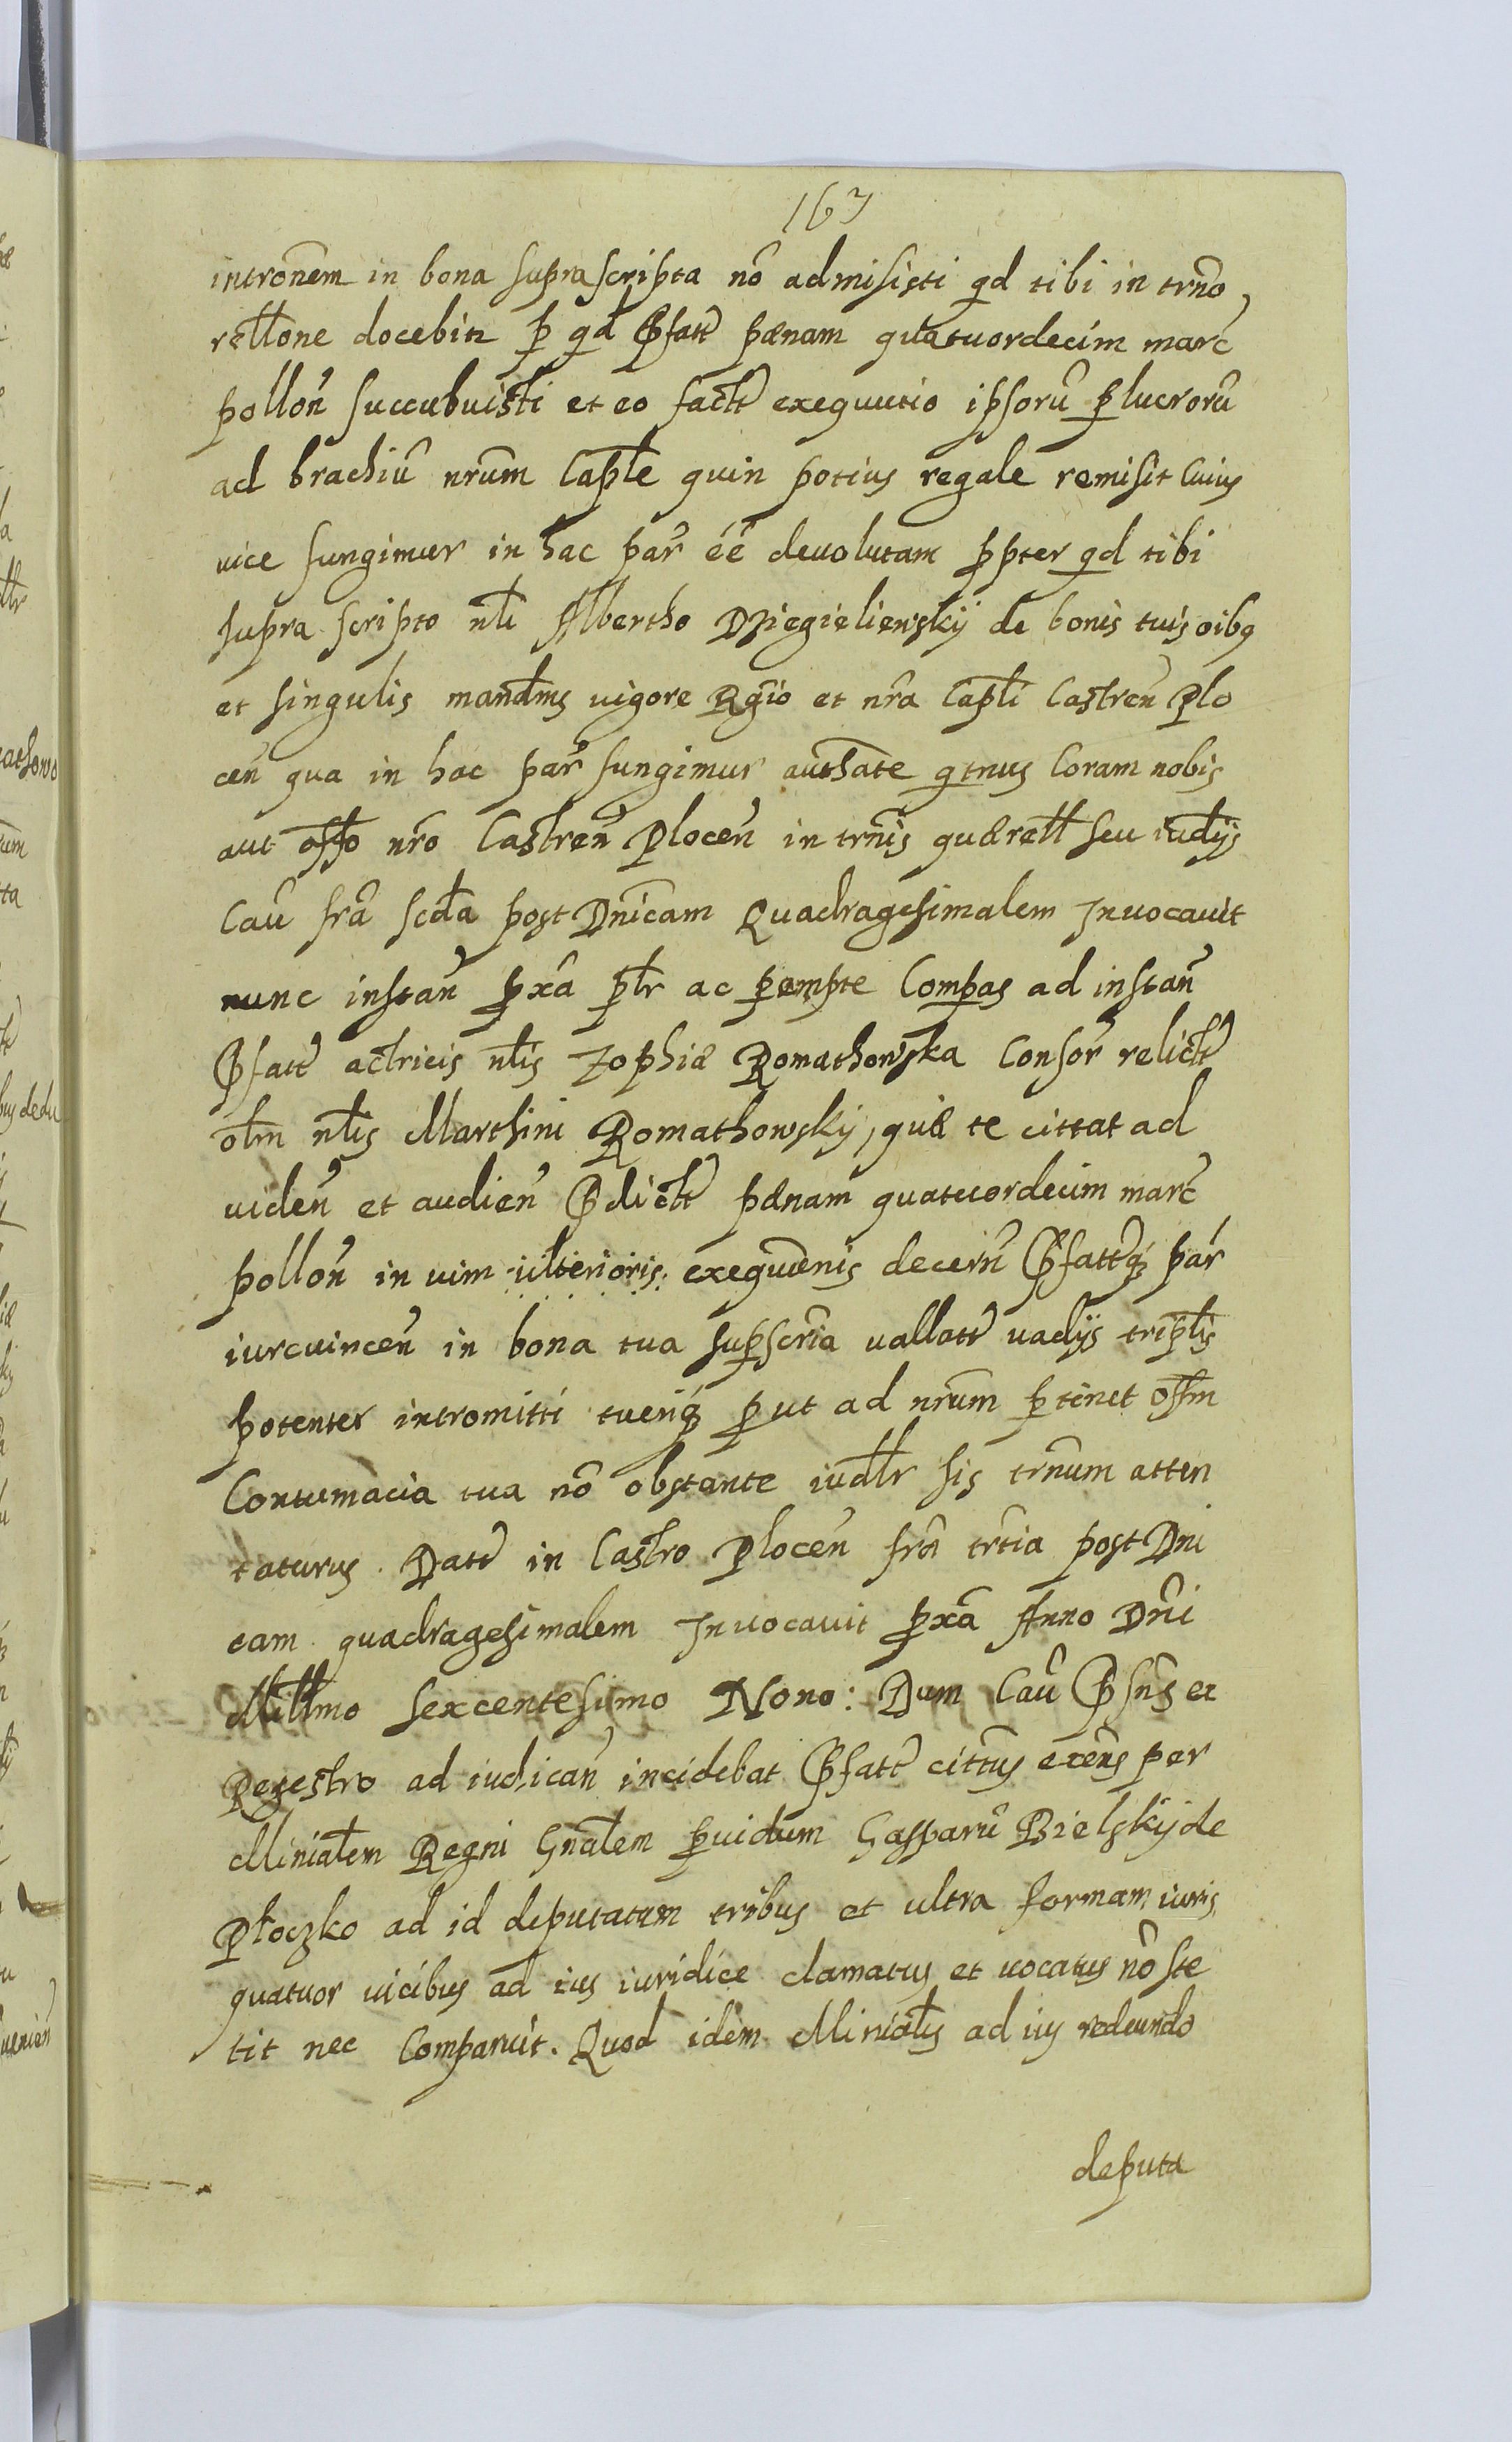 167
intronēm in bona supra scripta nō admisisti qd tibi in trno,
rellone docebit̄ p̱ qd Pfatt̄ pænam quatuordecim marc̄
pollon̄ succubuisti et eo fact̄ exequutio ipsorū p̱ lucrorū
ad brachiū nrūm Capt̄le quin potius regale remisit Cuius
vice fungimur in hac par̄ éé devolutam p̱pter qd tibi
supra scripto nl̄i Albertho Dziegieliewskÿ de bonis tuis oibq
et singulis mand̄ms vigore Rgio et nrā Capt̄li Castren̄ Plo
cen̄ qua in hac par̄ fungimur authāte qtnus Coram nobis
aut offo nrō Castren̄ Plocen̄ in trnīs quærell seu iudÿs
Cau̅ frā scda post Dnīcam Quadragesimalem Invocavit
nunc instan̄ p̱xā ptr̄ ac p̱empte Compas ad instan̄
Pfatt̄ actricis nl̄is Zophiæ Romathowska Consor̄ relict̄
olm̄ nl̄is Marthini Romathowskÿ, quæ te cittat ad
viden̄ et audien̄ Pdict̄ pænam quatuordecim marc̄
pollon̄ in vim ulterioris exequuēnis decern̄ Pfatt̄q; par̄
iurevincen̄ in bona tua supscrīa vallatt̄ vadÿs tripl̄is
potenter intromitti tueriq; p̱ut ad nrūm p̱tinet offm̄
Contumacia tua nō obstante iudlr̄ sis trnūm atten
taturus. Datt̄ in Castro Plocen̄ frā trtīa post Dni
cam quadragesimalem Invocavit p̱xā Anno Dnī
Millmo sexcentesimo Nono: Dum Cau̅ Psns̄ ex
Regestro ad iudican̄ incidebat Pfatt̄ cittūs exēns per
Miniatl̄em Regni Gnatl̄em p̱vidum Gasparū Bielskÿ de
Płoczko ad id deputatum tribus et ultra formam iuris
quatuor vicibus ad ius iuridice clamatus et vocatus nō ste
tit nec Comparuit. Quod idem Miniatl̄is ad ius redeundo
deputa